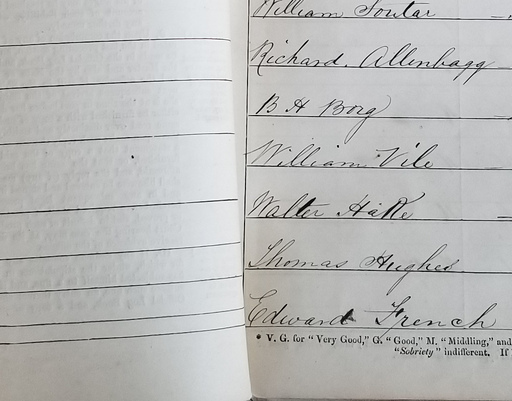 William Soutar
Richard. Allenbagg
B H Borg
William Vile
Walter Hake
Thomas Hughes
Edward French
* V. G. for "Very Good," G. "Good," M. "Middling," and
"Sobriety" indifferent. If